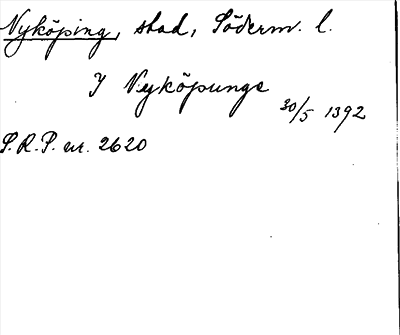 Nyköping, stad, Söderm. l.
I Nyköpunge
30/5 1392
S.R.P. nr. 2620